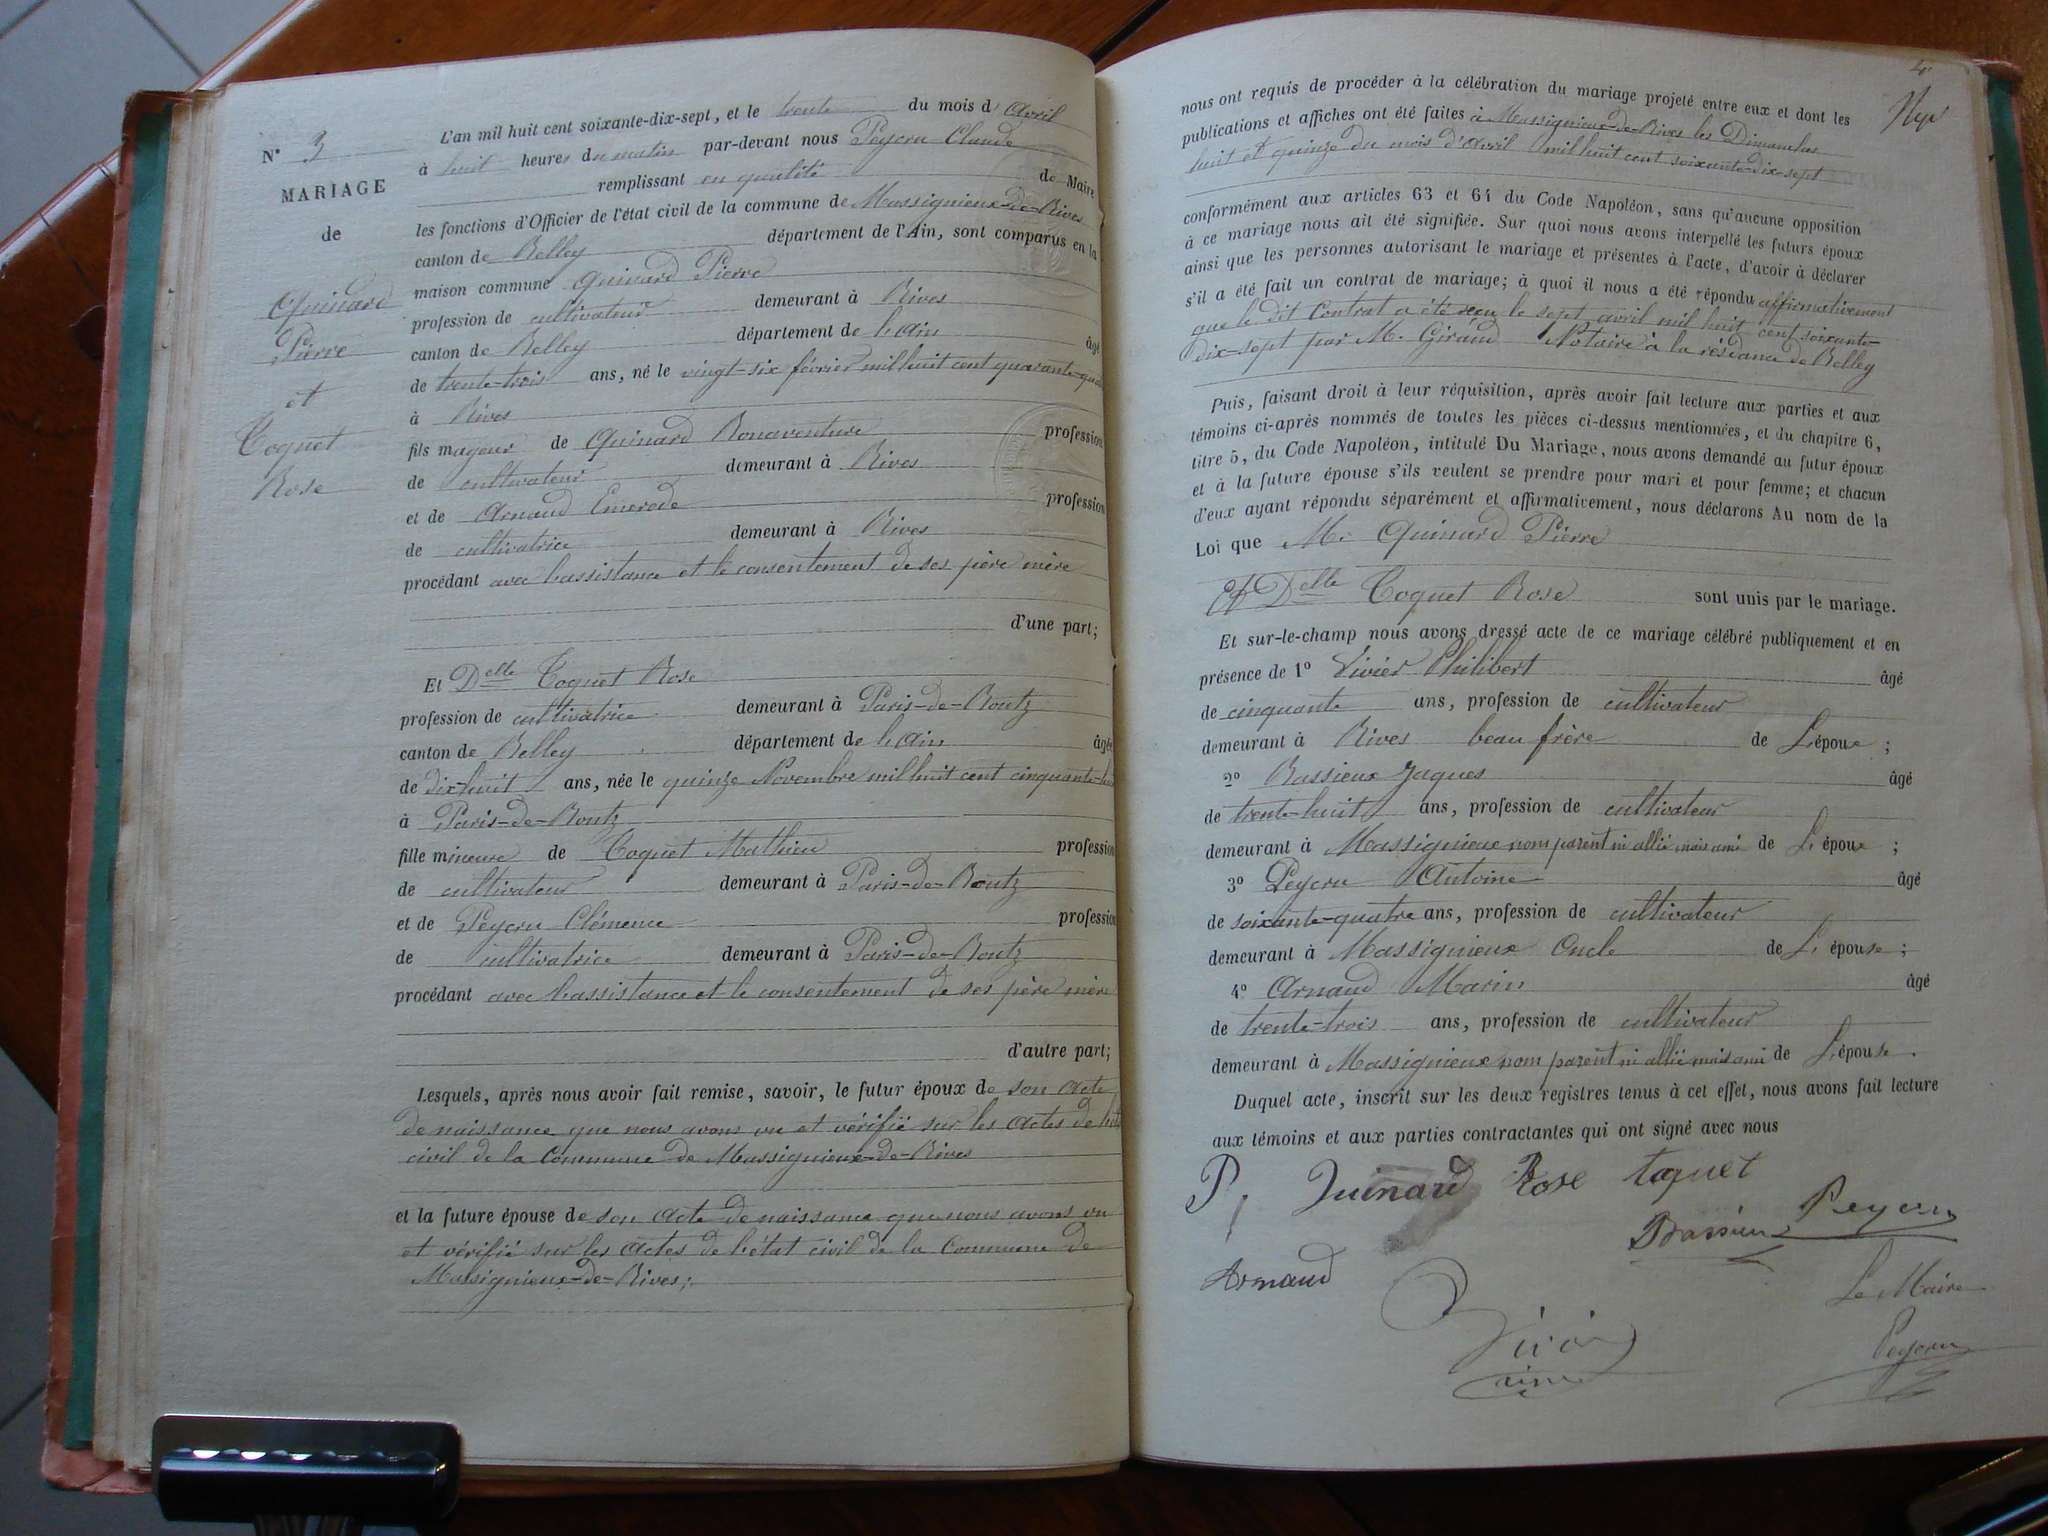 N° 3
MARIAGE
de
Quinard
Pierre
et
Toquet
Rose
L'an mil huit cent soixante-dix-sept, et le trente du mois d'Avril
à huit heures du matin par-devant nous Peycru Claude
remplissant en qualité de Maire
les fonctions d'Officier de l'état civil de la commune de Massignieux-de-Rives
canton de Belley département de l'Ain, sont comparus en la
maison commune Quinard Pierre
profession de cultivateur demeurant à Rives
canton de Belley département de l'ain âgé
de trente-trois ans, né le vingt-six février mil huit cent quarante-quatre
à Rives
fils mageur de Quinard Bonaventure profession
de cultivateur demeurant à Rives
et de Arnaud Emerode profession
de cultivatrice demeurant à Rives
procédant avec l'assistance et le consentement de ses père mère
d'une part;
Et Delle Toquet Rose
profession de cultivatrice demeurant à Paris-de-Boutz
canton de Belley département de l'ain âgée
de dix-huit ans, née le quinze Novembre mil huit cent cinquante-huit
à Paris-de-Boutz
fille mineure de Toquet Mathieu profession
de cultivateur demeurant à Paris-de-Boutz
et de Peycru Clémence profession
de cultivatrice demeurant à Paris-de-Boutz
procédant avec l'assistance et le consentement de ses père mère
d'autre part;
Lesquels, après nous avoir fait remise, savoir, le futur époux de son Acte
de naissance que nous avons vu et vérifié sur les Actes de l'état
civil de la Commune de Massignieux-de-Rives
et la future épouse de son Acte de naissance que nous avons vu
et vérifié sur les Actes de l'état civil de la Commune de
Massignieux-de-Rives;
4
nous ont requis de procéder à la célébration du mariage projeté entre eux et dont les
publications et affiches ont été faites à Massignieux-de-Rives les Dimanches
huit et quinze du mois d'avril mil huit cent soixante-dix-sept
conformément aux articles 63 et 64 du Code Napoléon, sans qu'aucune opposition
à ce mariage nous ait été signifiée. Sur quoi nous avons interpellé les futurs époux
ainsi que les personnes autorisant le mariage et présentes à l'acte, d'avoir à déclarer
s'il a été fait un contrat de mariage; à quoi il nous a été répondu affirmativement
que le dit Contrat a été reçu le sept avril mil huit cent soixante-
dix-sept par M. Giraud Notaire à la résidance de Belley
Puis, faisant droit à leur réquisition, après avoir fait lecture aux parties et aux
témoins ci-après nommés de toutes les pièces ci-dessus mentionnées, et du chapitre 6,
titre 5, du Code Napoléon, intitulé Du Mariage, nous avons demandé au futur époux
et à la future épouse s'ils veulent se prendre pour mari et pour femme; et chacun
d'eux ayant répondu séparément et affirmativement, nous déclarons Au nom de la
Loi que Mr Quinard Pierre
Et Delle Toquet Rose sont unis par le mariage.
Et sur-le-champ nous avons dressé acte de ce mariage célébré publiquement et en
présence de 1° Vivier Philibert âgé
de cinquante ans, profession de cultivateur
demeurant à Rives beau frère de L'épouse;
2° Bassieux Jaques âgé
de trente-huit ans, profession de cultivateur
demeurant à Massignieux nom parent ni allié mais ami de L'épouse;
3° Peycru Antoine âgé
de soixante-quatre ans, profession de cultivateur
demeurant à Massignieux Oncle de L'épouse;
4° Arnaud Marin âgé
de trente-trois ans, profession de cultivateur
demeurant à Massignieux nom parent ni allié mais ami de L'épouse.
Duquel acte, inscrit sur les deux registres tenus à cet effet, nous avons fait lecture
aux témoins et aux parties contractantes qui ont signé avec nous
P. Juinard Rose taquet
Brassieu Peycru
Arnaud
Le Maire
Peycru